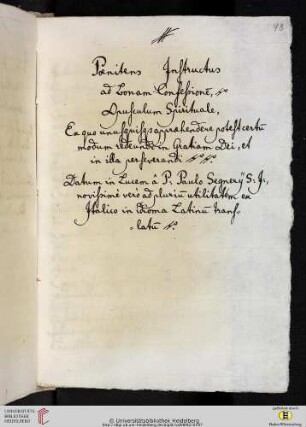 93
Pœnitens Instructus
ad bonam Confessionē,
Opusculum Spirituale,
Ex quo unusquisq; apprehendere potest certū
modum redeundi in Gratiam Dei, et
in illa perseverandi
Datum in Lucem à P. Paulo Segnerÿ S: J:
novissimè verò ad plurium utilitatem ex
Italico in Idioma Latinū trans-
latū
UNIVERSITÄTS-
BIBLIOTHEK
HEIDELBERG
© Universitätsbibliothek Heidelberg
gefördert durch
Baden-Württemberg